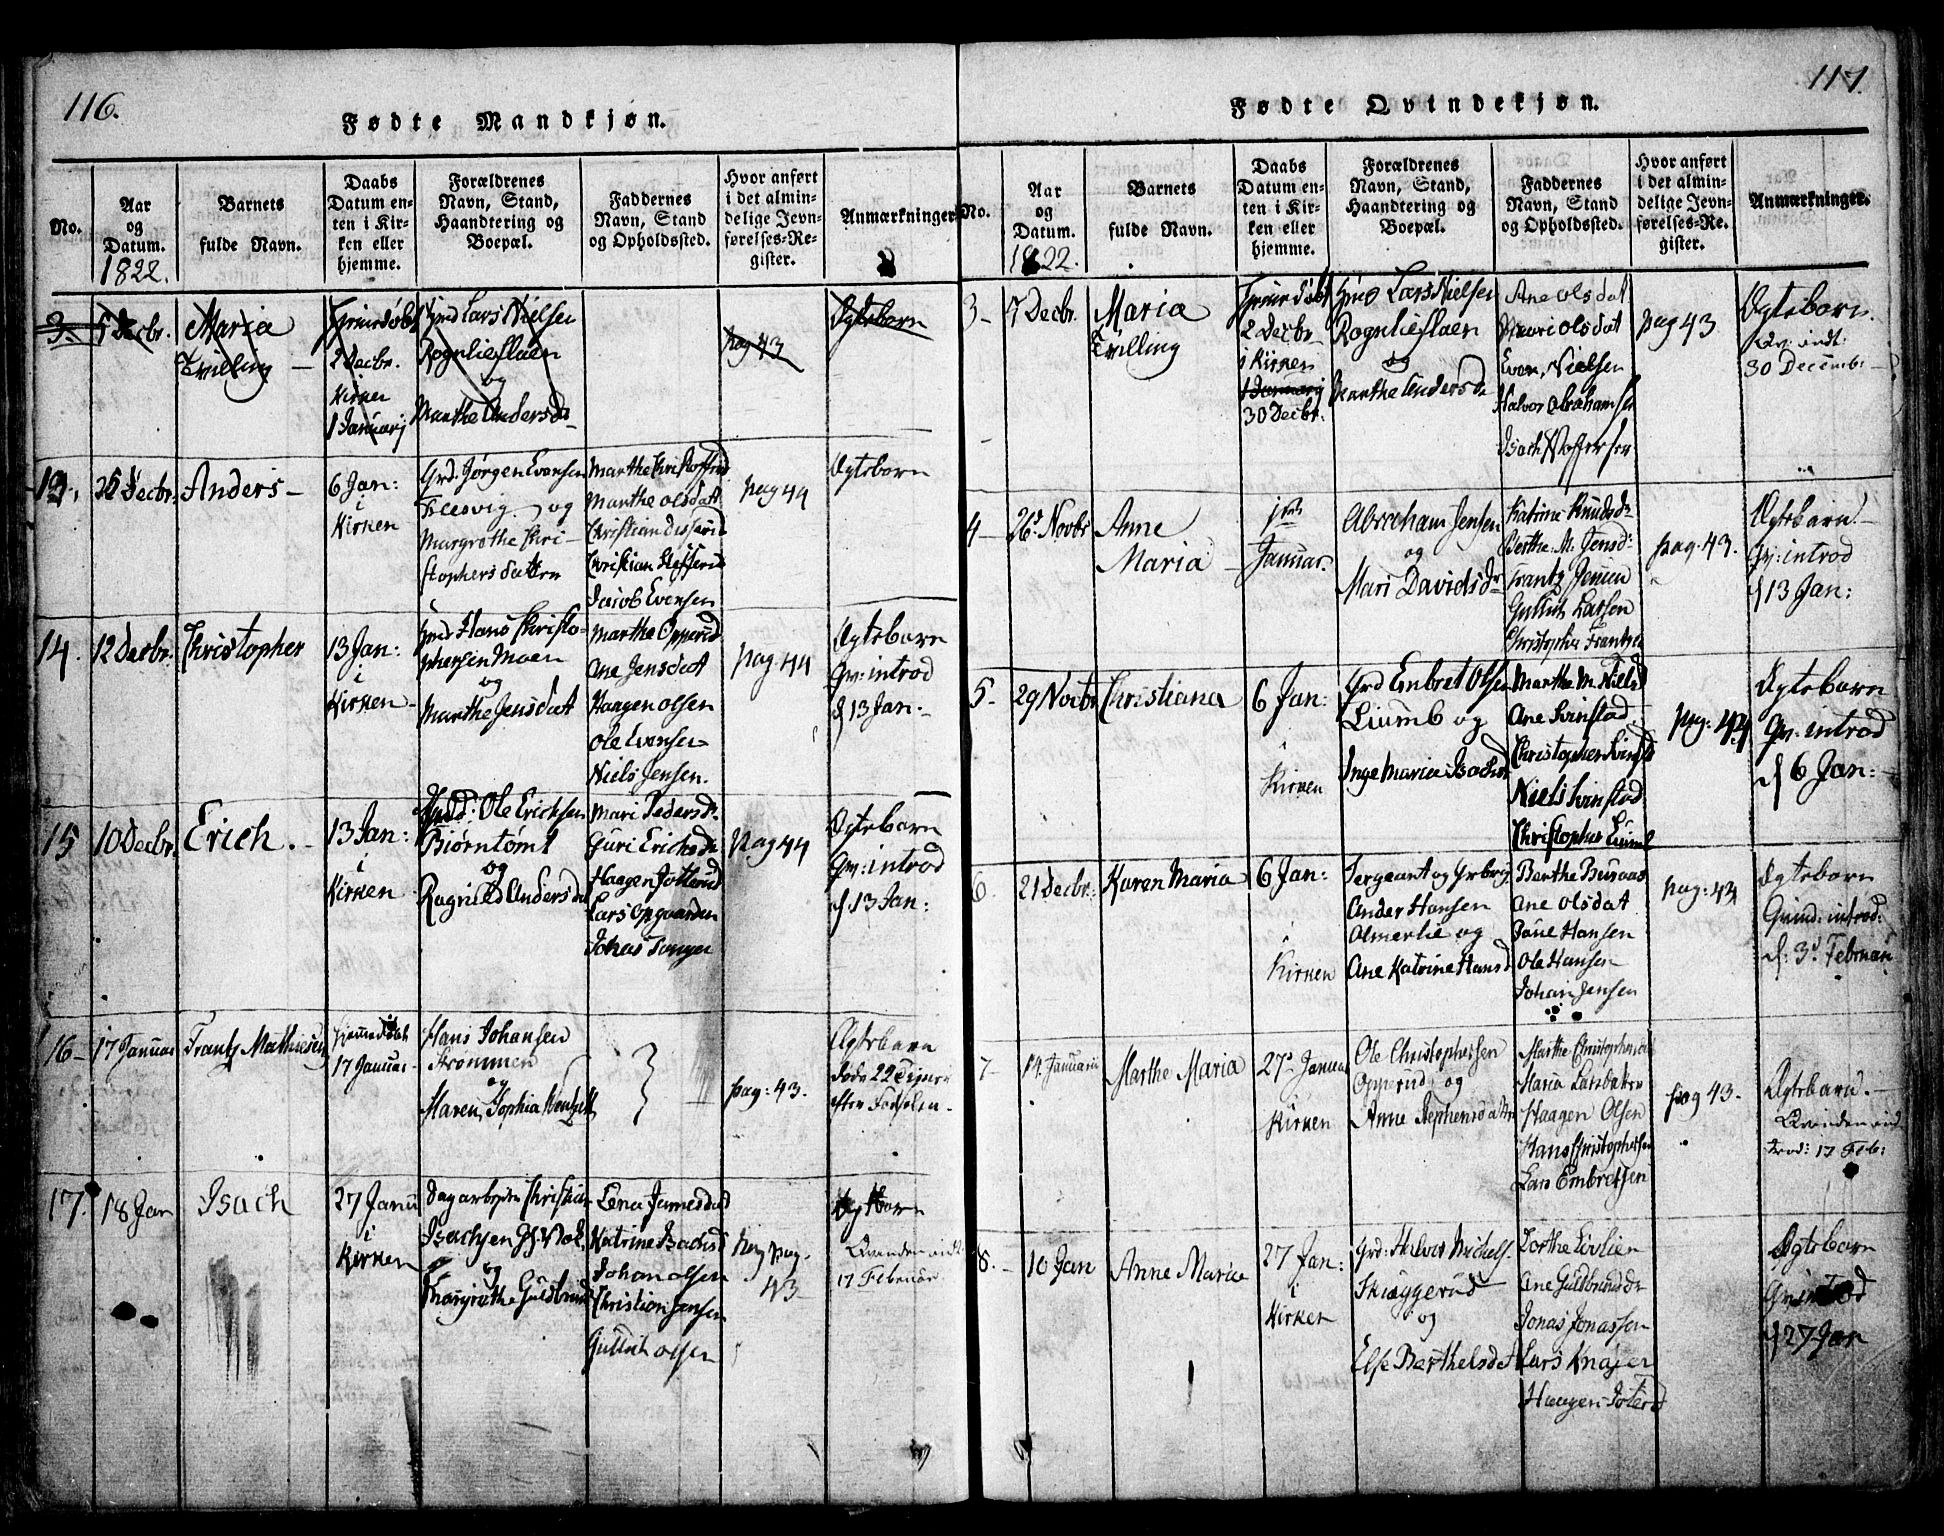 116.
Fødte Mandkjøn.
No.
Aar
og
Datum.
1822.
Barnets
fulde Navn.
Daabs
Datum en-
ten i Kir-
ken eller
hjemme.
Forældrenes
Navn, Stand,
Haandtering og
Boepæl.
Faddernes
Navn, Stand
og Opholdssted.
Hvor anført
i det almin-
delige Jevn-
førelses-Re-
gister.
Anmærkninger
3.
5 Decbr.
Maria
Tvilling
2 Decbr.
Kirken
1 Januarj
Lars Nielsen
Rognlieflaen
og
Marthe Andersd
pag 43
Ægtebarn
13.
26 Decbr.
Anders
6 Jan:
i
Kirken
Grd. Jørgen Evensen
og
Margrethe Chri-
stophersdatter
Marthe Christoffersd
Marthe Olsdatt
Jacob Evensen
pag 44
Ægtebarn
14.
12 Decbr.
Christopher
13 Jan:
i
Kirken
Grd Hans Christo-
phersen Moen
og
Marthe Jensdat
Marthe Opperud
Ane Jensdat
Haagen Olsen
Ole Evensen
Niels Jensen.
pag 44
Ægtebarn
Qv: introd
d 13 Jan:
15
10 Decbr.
Erich.
13 Jan:
i
Kirken
Ole Ericksen
Biørntømt
og
Ragnild Andersd
Mari Pedersd
Guri Ericksd
Haagen Jotterud
Lars Opgaarden
pag 44
Ægtebarn
Qv: introd
d 13 Jan:
16
17 Januar
Frantz Mathiesen
17 Januar
Hans Johansen
Strommen
og
Maren Sophia
pag: 43.
Ægtebarn
17.
18 Jan
Isach
27 Janu
i
Kirken
Isachsen
og
Margrethe Guldbrand
Katrine Isachsd
Johan Olsen
Christian Jensen
Gullich Olsen
pag.
43
Ægtebarn
17 Februar
117.
Fødte Qvindekjøn.
No.
Aar
og
Datum.
1822.
Barnets
fulde Navn.
Daabs
Datum en-
ten i Kir-
ken eller
hjemme.
Forældrenes
Navn, Stand,
Haandtering og
Boepæl.
Faddernes
Navn, Stand
og Opholdssted.
Hvor anført
i det almin-
delige Jevn-
førelses-Re-
gister.
Anmærkninger.
3
7 Decbr.
Maria
Tvilling
2 Decbr
i Kirken
1 Januarj
30 Decbr.
Lars Nielsen
Rognlieflaen
og
Marthe Andersd
Ane Olsdat
Mari Olsdat
Even Nielsen
Halvor Abrahamsen
pag 43
Ægtebarn.
30 Decemb
4
26 Novbr
Anne
Maria
Januar
Abraham Jensen
og
Mari Davidsd
Katrine Knudsd
Berthe M. Jensd
Frantz Jensen
Gullich Larsen
Christopher Frantzen
pag. 43.
Ægtebarn.
Qv: introd
d 13 Jan:
5.
29 Novbr
Christiana
6 Jan:
i
Kirken
Grd Embret Olsen
Liumb og
Inge Maria Isachsd
Marthe M. Nielsd
Ane Svinstad
Christopher Svinstad
Niels Svinstad
Christopher Liumb
pag: 44
Ægtebarn
Qv: introd
d 6 Jan:
6.
21 Decbr:
Karen Maria
6 Jan:
i
Kirken
Sergeant og
Ander Hansen
Almerlie og
Ane Katrine Hansd
Berthe Buraas
Ane Olsdat
Hansen
Ole Hansen
Johan Jensen
pag: 44
Ægtebarn
Qvind: introd:
d: 3 Februar
7
14 Januarii
Marthe Maria
27 Januar
Kirken
Ole Christophersen
Opperud og
Anne Stephensdatter
Marthe
Maria
Haagen Olsen
Hans Christophersen
Lars Embretsen
pag 43.
Ægtebarn.
Qvinden ind
trod: 17 Feb:
8.
10 Jan
Anne Maria
27 Jan:
i
Kirken
Grd: Halvor Michels.
Skiæggerud
og
Else Barthelsdat
Dorthe Livlien
Ane Guldbrandsdr
Jonas Jonassen
Lars Knajer
Haagen Joterud
Ægtebarn
d 27 Jan